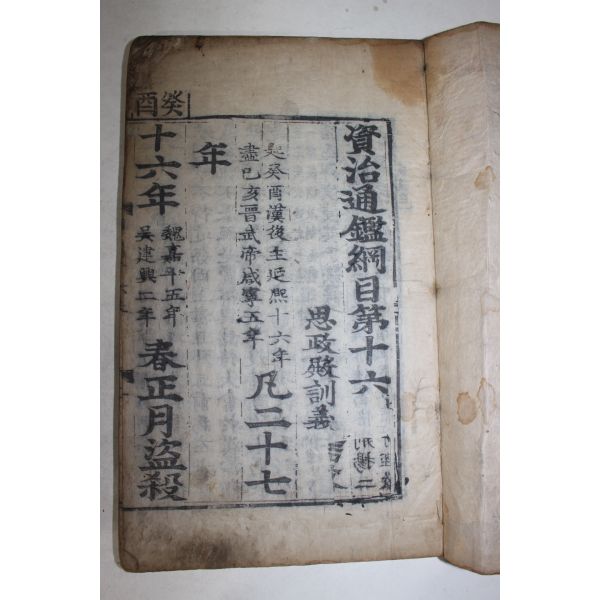 資治通鑑綱目第十六
思政殿訓義
起癸酉漢後主延熙十六年
盡己亥晉武帝咸寧五年
凡二十七
年
癸酉
十六年
魏嘉平五年
吳建興二年
春正月盜殺